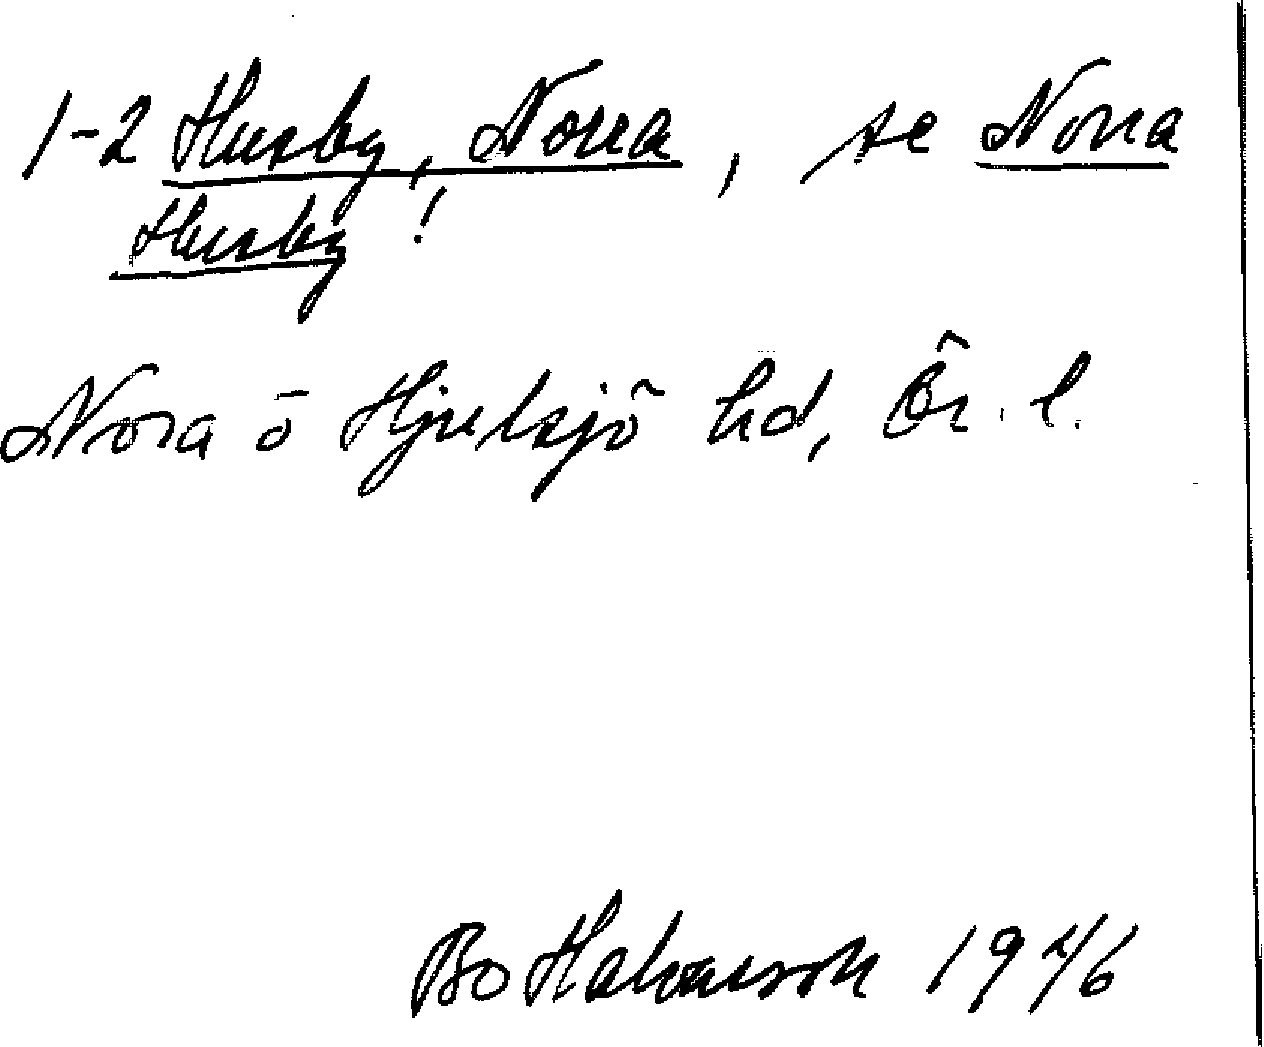 1-2 Husby, Norra, se Norra
Husby!
Nora ö Hjulsjö hd, Ör. l.
Bo Halvarson 1976